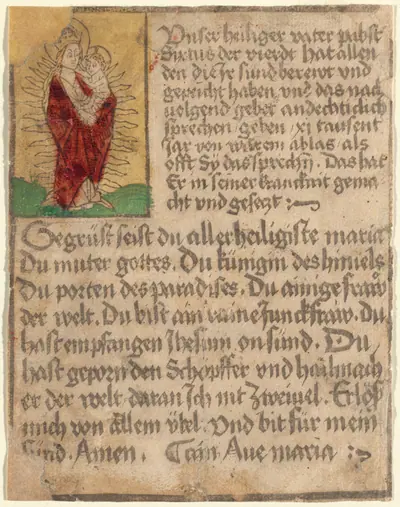 Unser heiliger vater pabst
Sixtus der vierdt hat allen
den die jr sünd berewt und
gepeicht haben und das nach
volgend gebet andechticlich
sprechen geben xj tausent
Jar von warem ablas als
offt Sy das sprechn. Das hat
Er in seiner kranckait gema
cht und gesetzt :~
Gegrüst seist du aller heiligiste maria
Du muter gottes. Du künigin des himels
Du porten des paradises. Du ainige fraw
der welt. Du bist ain raine Junckfraw. Du
hast empfangen Jhesum on sünd. Du
hast geporn den Schopffer und hailmach
er der welt daran Ich nit zweivel. Erlöß
mich von allem übel. Und bit für mein
Sünd. Amen. Ain Ave maria :~